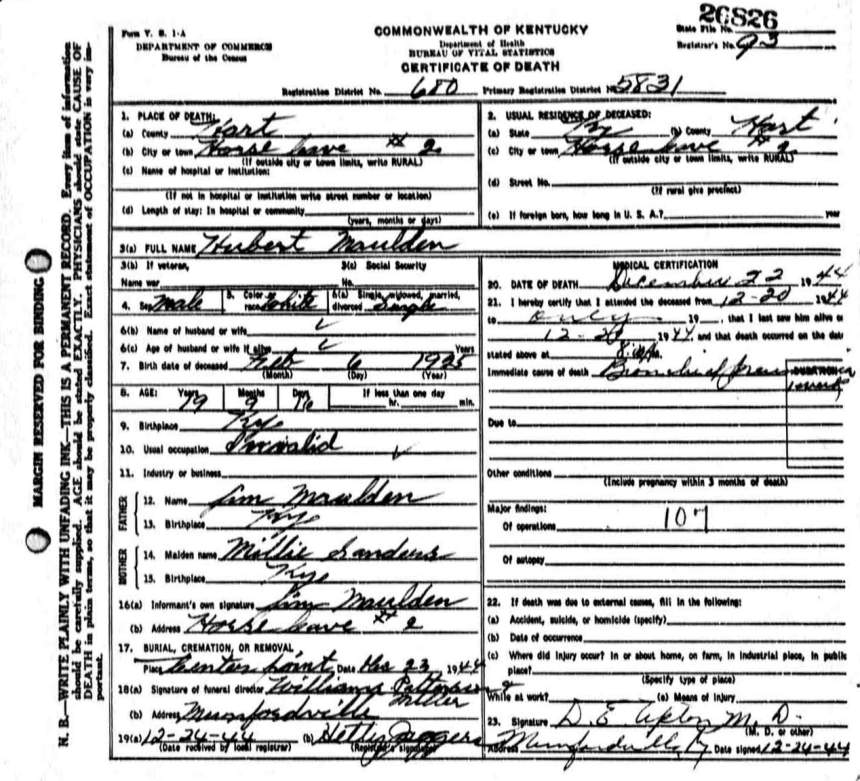 26826
Form V. S. 1-A
COMMONWEALTH OF KENTUCKY
State File No.
DEPARTMENT OF COMMERCE
Department of Health
Registrar's No. 93
Bureau of the Census
BUREAU OF VITAL STATISTICS
CERTIFICATE OF DEATH
Registration District No. 680 Primary Registration District No. 5831
MARGIN RESERVED FOR BINDING
N. B.—WRITE PLAINLY WITH UNFADING INK—THIS IS A PERMANENT RECORD. Every item of information
should be carefully supplied. AGE should be stated EXACTLY. PHYSICIANS should state CAUSE OF
DEATH in plain terms, so that it may be properly classified. Exact statement of OCCUPATION is very im-
portant.
1. PLACE OF DEATH:
(a) County Hart
(b) City or town Horse Cave # 2
(If outside city or town limits, write RURAL)
(c) Name of hospital or institution:
(If not in hospital or institution write street number or location)
(d) Length of stay: In hospital or community
(years, months or days)
2. USUAL RESIDENCE OF DECEASED:
(a) State Ky (b) County Hart
(c) City or town Horse Cave # 2
(If outside city or town limits, write RURAL)
(d) Street No.
(If rural give precinct)
(e) If foreign born, how long in U. S. A.? year
3(a) FULL NAME Hubert Maulden
3(b) If veteran,
Name war
3(c) Social Security
No.
4. Sex Male 5. Color race White 6(a) Single, widowed, married, divorced Single
6(b) Name of husband or wife
6(c) Age of husband or wife if alive Years
7. Birth date of deceased Feb 6 1925
(Month) (Day) (Year)
8. AGE: Years Months Days If less than one day
19 hr. min.
9. Birthplace Ky
10. Usual occupation Invalid
11. Industry or business
FATHER
12. Name Jim Maulden
13. Birthplace Ky
MOTHER
14. Maiden name Millie Sanders
15. Birthplace Ky
16(a) Informant's own signature Jim Maulden
(b) Address Horse Cave # 2
17. BURIAL, CREMATION, OR REMOVAL
Place Center Point Date Dec 23 1944
18(a) Signature of funeral director Williams Patterson &
Miller
(b) Address Munfordville
19(a) 12-24-44 (b) Hetty Jaggers
(Date received by local registrar) (Registrar's signature)
MEDICAL CERTIFICATION
20. DATE OF DEATH December 22 1944
21. I hereby certify that I attended the deceased from 12-20 1944
to only 19 , that I last saw him alive o
12-20 1944, and that death occurred on the date
stated above at
Immediate cause of death DURATION
1 week
Due to
Other conditions
(Include pregnancy within 3 months of death)
Major findings:
Of operations 107
Of autopsy
22. If death was due to external causes, fill in the following:
(a) Accident, suicide, or homicide (specify)
(b) Date of occurrence
(c) Where did injury occur? In or about home, on farm, in industrial place, in public
place?
(Specify type of place)
While at work? (e) Means of Injury
23. Signature D. E. Upton M. D.
(M. D. or other)
Address Munfordville, Ky Date signed 12-24-44